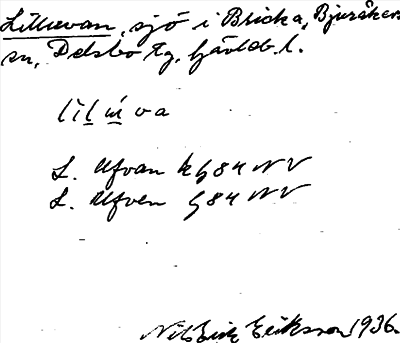 Lilluvan, sjö i Bricka, Bjuråkers
sn, Delsbo tg, Gävleb. l.
lìlúva
L. Ufvan k G84 NV
L. Ufven G84 NV
Nils Erik Eriksson 1936.